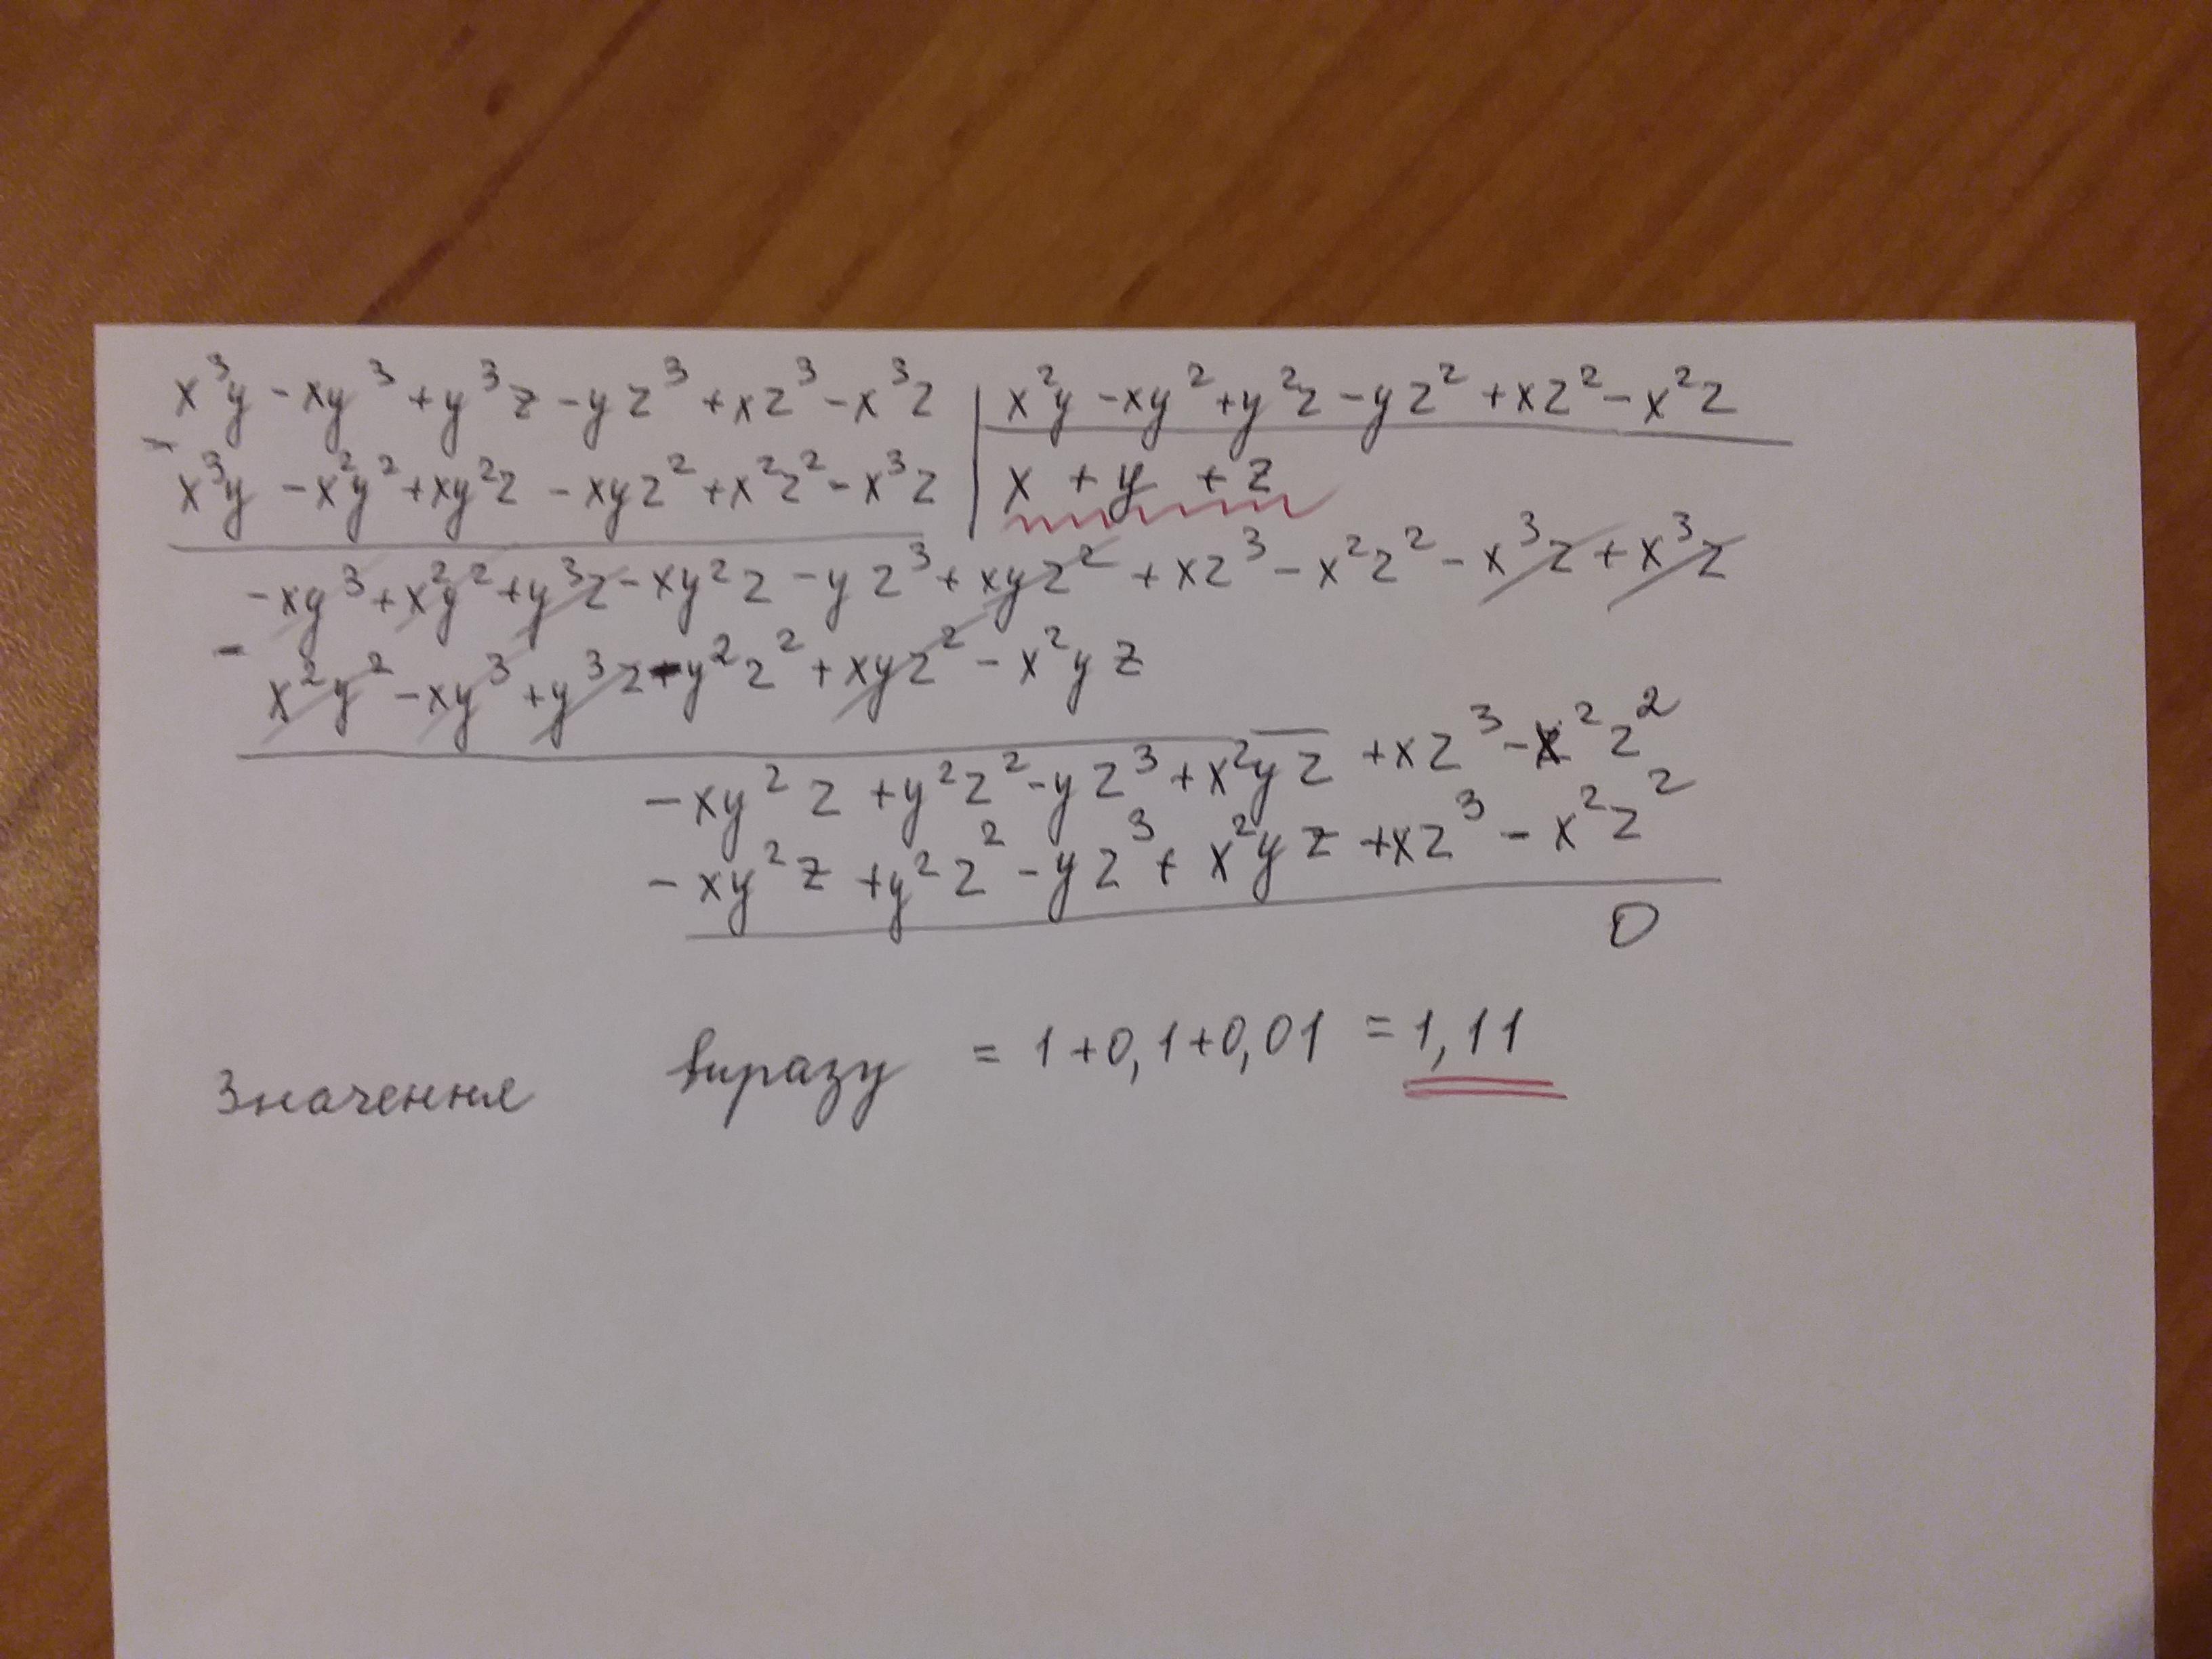 x³y - xy³ + y³z - yz³ + xz³ - x³z | x²y - xy² + y²z - yz² + xz² - x²z
- x³y - x²y² + xy²z - xyz² + x²z² - x³z | x + y + z
-xy³ + x²y² + y³z - xy²z - yz³ + xyz² + xz³ - x²z² - x³z + x³z
- x²y² - xy³ + y³z - y²z² + xyz² - x²yz
-xy²z + y²z² - yz³ + x²yz + xz³ - x²z²
-xy²z + y²z² - yz³ + x²yz + xz³ - x²z²
0
Значення виразу = 1 + 0,1 + 0,01 = 1,11